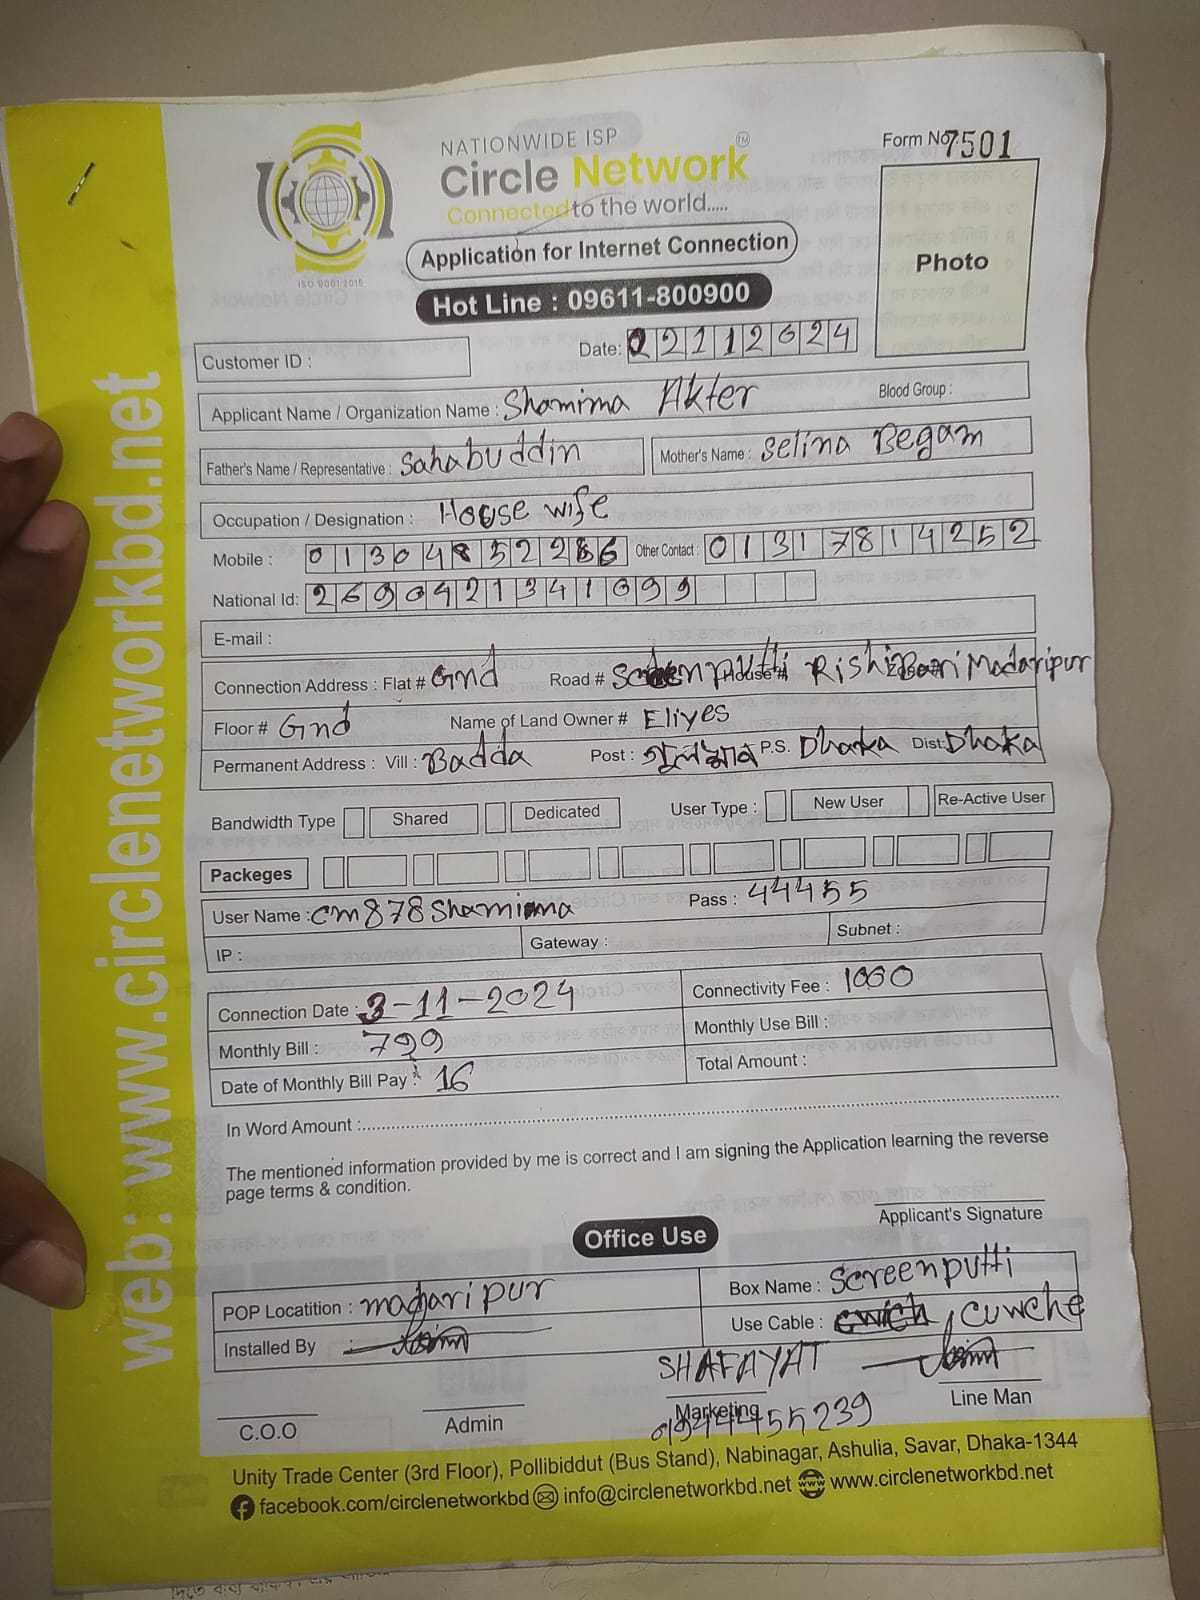 NATIONWIDE ISP
Circle Network TM
Connected to the world.....
Form No 7501
Application for Internet Connection
Photo
Hot Line : 09611-800900
ISO 9001:2015
Customer ID :
Date: 02112024
Applicant Name / Organization Name : Shamima Akter Blood Group :
Father's Name / Representative : Sahabuddin Mother's Name : Selina Begam
Occupation / Designation : House wife
Mobile : 01304852286 Other Contact : 01317814252
National Id: 2690421341099
E-mail :
Connection Address : Flat # Gnd Road # Screenputti House # Rishi Bari Madaripur
Floor # Gnd Name of Land Owner # Eliyes
Permanent Address : Vill : Badda Post : গুলশান P.S. Dhaka Dist: Dhaka
Bandwidth Type Shared Dedicated User Type : New User Re-Active User
Packeges
User Name : cm878Shamima Pass : 44455
IP : Gateway : Subnet :
Connection Date : 3-11-2024 Connectivity Fee : 1000
Monthly Bill : 799 Monthly Use Bill :
Date of Monthly Bill Pay : 16 Total Amount :
In Word Amount :
The mentioned information provided by me is correct and I am signing the Application learning the reverse
page terms & condition.
Applicant's Signature
Office Use
POP Locatition : madaripur Box Name : Screenputti
Installed By Use Cable :
SHAFAYAT
C.O.O Admin Marketing Line Man
01944455239
Unity Trade Center (3rd Floor), Pollibiddut (Bus Stand), Nabinagar, Ashulia, Savar, Dhaka-1344
facebook.com/circlenetworkbd info@circlenetworkbd.net www.circlenetworkbd.net
web: www.circlenetworkbd.net